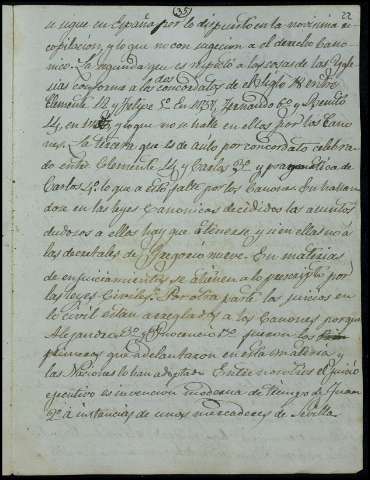 (35)
22
se sigue en España por lo dispuesto en la novisima re
copilacion, y lo que no con sugecion a el derecho Cano
nico. La segunda que es respecto a las cosas de las Ygle
sias conforme a los dos concordatos de el Siglo 18 entre
Clemente 12 y Felipe 5º en 1737, Fernando 6º y Benedicto
14, en 17 y lo que no se halle en ellos por los Cano
nes. La tercera que es de auto por concordato celebra
do entre Clemente 14 y Carlos 3º y pragmatica de
Carlos 4º lo que a esté falte por los Canones. En hallan
dose en las leyes Canonicas decididos los asuntos
dudosos a ellas hay que atenerse, y si en ellas no á
las decretales de Gregorio nueve. En materias
de enjuiciamientos se atienen a lo prescripto por
las leyes Civiles. Por otra parte los juicios en
lo civil estan arreglados a los Canones porque
Alejandro 3º é Ynocencio 3º fueron los
primeros que adelantaron en esta materia, y
las Naciones lo han adoptado. Entre nosotros el juicio
ejecutivo es invencion moderna de tiempo de Juan
2º á instancias de unos mercaderes de Sevilla